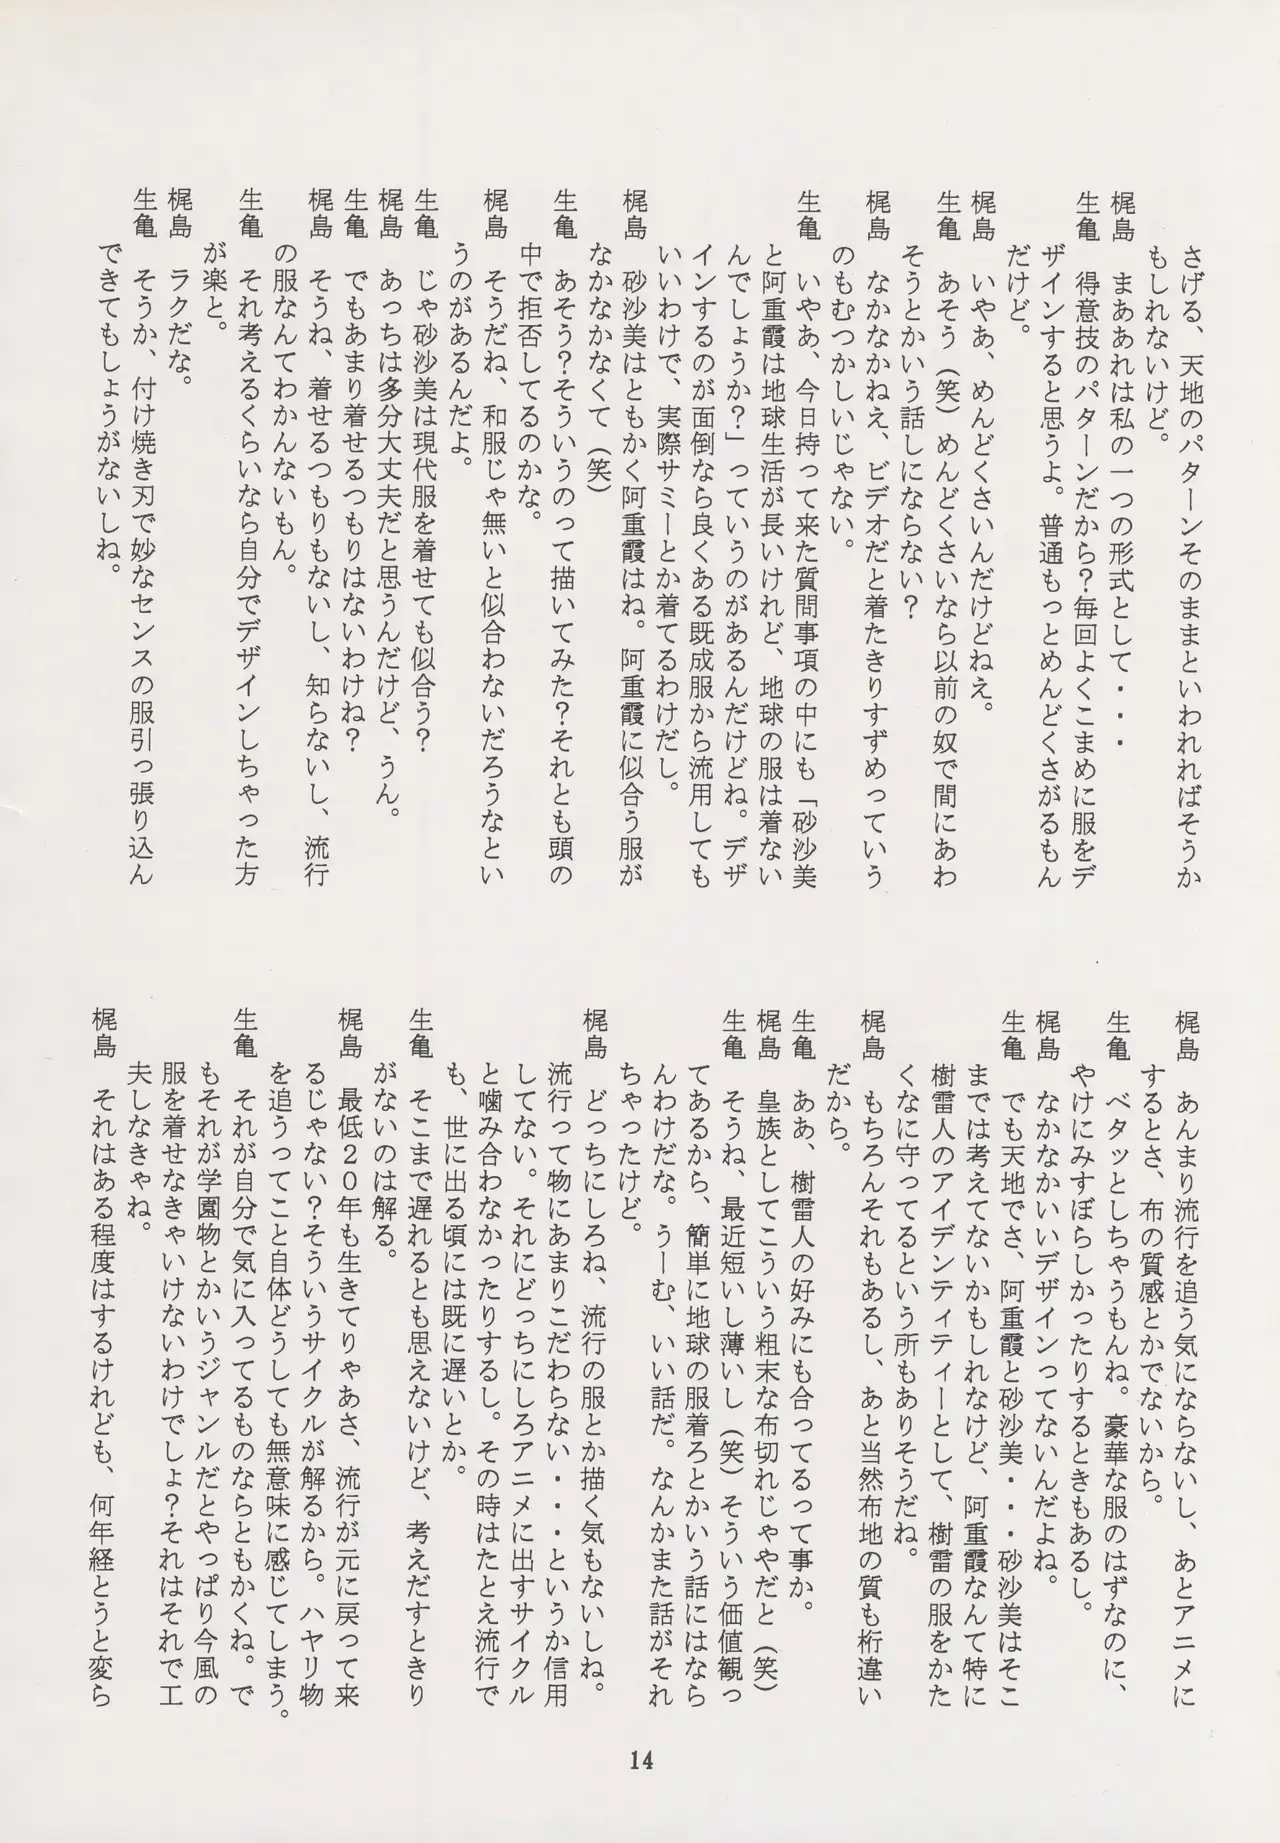 さげる、天地のパターンそのままといわれればそうか
もしれないけど。
梶島　まああれは私の一つの形式として・・・
生亀　得意技のパターンだから？毎回よくこまめに服をデ
ザインすると思うよ。普通もっとめんどくさがるもん
だけど。
梶島　いやあ、めんどくさいんだけどねえ。
生亀　あそう（笑）めんどくさいなら以前の奴で間にあわ
そうとかいう話しにならない？
梶島　なかなかねえ、ビデオだと着たきりすずめっていう
のもむつかしいじゃない。
生亀　いやあ、今日持って来た質問事項の中にも「砂沙美
と阿重霞は地球生活が長いけれど、地球の服は着ない
んでしょうか？」っていうのがあるんだけどね。デザ
インするのが面倒なら良くある既成服から流用しても
いいわけで、実際サミーとか着てるわけだし。
梶島　砂沙美はともかく阿重霞はね。阿重霞に似合う服が
なかなかなくて（笑）
生亀　あそう？そういうのって描いてみた？それとも頭の
中で拒否してるのかな。
梶島　そうだね、和服じゃ無いと似合わないだろうなとい
うのがあるんだよ。
生亀　じゃ砂沙美は現代服を着せても似合う？
梶島　あっちは多分大丈夫だと思うんだけど、うん。
生亀　でもあまり着せるつもりはないわけね？
梶島　そうね、着せるつもりもないし、知らないし、流行
の服なんてわかんないもん。
生亀　それ考えるくらいなら自分でデザインしちゃった方
が楽と。
梶島　ラクだな。
生亀　そうか、付け焼き刃で妙なセンスの服引っ張り込ん
できてもしょうがないしね。
梶島　あんまり流行を追う気にならないし、あとアニメに
するとさ、布の質感とかでないから。
生亀　ベタッとしちゃうもんね。豪華な服のはずなのに、
やけにみすぼらしかったりするときもあるし。
梶島　なかなかいいデザインってないんだよね。
生亀　でも天地でさ、阿重霞と砂沙美・・・砂沙美はそこ
までは考えてないかもしれなけど、阿重霞なんて特に
樹雷人のアイデンティティーとして、樹雷の服をかた
くなに守ってるという所もありそうだね。
梶島　もちろんそれもあるし、あと当然布地の質も桁違い
だから。
生亀　ああ、樹雷人の好みにも合ってるって事か。
梶島　皇族としてこういう粗末な布切れじゃやだと（笑）
生亀　そうね、最近短いし薄いし（笑）そういう価値観っ
てあるから、簡単に地球の服着ろとかいう話にはなら
んわけだな。うーむ、いい話だ。なんかまた話がそれ
ちゃったけど。
梶島　どっちにしろね、流行の服とか描く気もないしね。
流行って物にあまりこだわらない・・・というか信用
してない。それにどっちにしろアニメに出すサイクル
と噛み合わなかったりするし。その時はたとえ流行で
も、世に出る頃には既に遅いとか。
生亀　そこまで遅れるとも思えないけど、考えだすときり
がないのは解る。
梶島　最低２０年も生きてりゃあさ、流行が元に戻って来
るじゃない？そういうサイクルが解るから。ハヤリ物
を追うってこと自体どうしても無意味に感じてしまう。
生亀　それが自分で気に入ってるものならともかくね。で
もそれが学園物とかいうジャンルだとやっぱり今風の
服を着せなきゃいけないわけでしょ？それはそれで工
夫しなきゃね。
梶島　それはある程度はするけれども、何年経とうと変ら
14